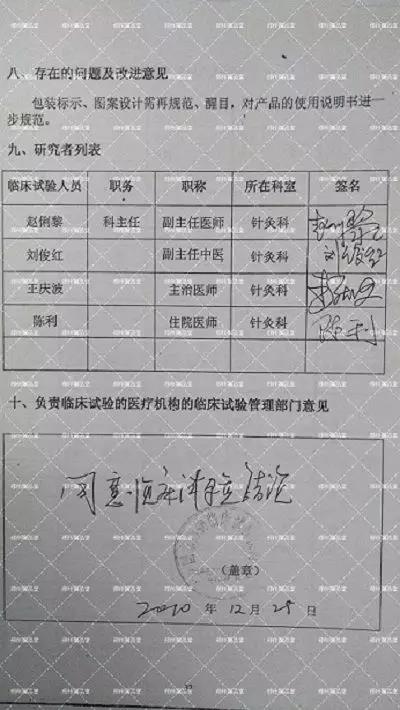 八、存在的问题及改进意见
包装标示、图案设计需再规范、醒目，对产品的使用说明书进一
步规范。
九、研究者列表
临床试验人员 职务 职称 所在科室 签名
赵俐黎 科主任 副主任医师 针灸科
刘俊红 副主任中医 针灸科 刘俊红
王庆波 主治医师 针灸科
陈利 住院医师 针灸科 陈利
十、负责临床试验的医疗机构的临床试验管理部门意见
同意临床试验结论
（盖章）
2010 年 12 月 25 日